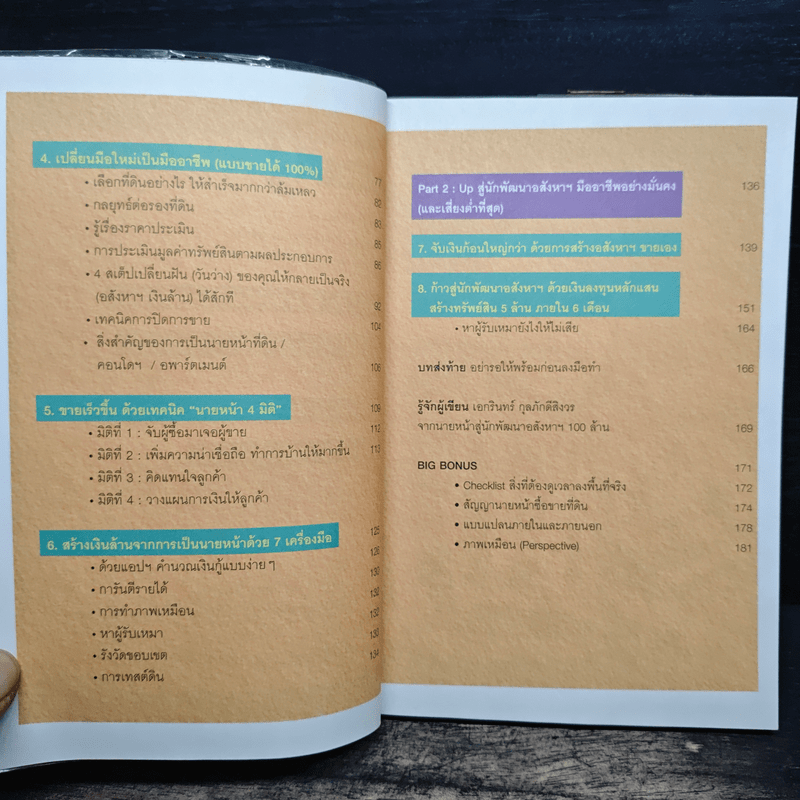 4. เปลี่ยนมือใหม่เป็นมืออาชีพ (แบบขายได้ 100%)
• เลือกที่ดินอย่างไร ให้สำเร็จมากกว่าล้มเหลว 77
• กลยุทธ์ต่อรองที่ดิน 82
• รู้เรื่องราคาประเมิน 83
• การประเมินมูลค่าทรัพย์สินตามผลประกอบการ 85
• 4 สเต็ปเปลี่ยนฝัน (วันว่าง) ของคุณให้กลายเป็นจริง 86
(อสังหาฯ เงินล้าน) ได้สักที
• เทคนิคการปิดการขาย 92
• สิ่งสำคัญของการเป็นนายหน้าที่ดิน / 104
คอนโดฯ / อพาร์ตเมนต์ 106
5. ขายเร็วขึ้น ด้วยเทคนิค "นายหน้า 4 มิติ" 109
• มิติที่ 1 : จับผู้ซื้อมาเจอผู้ขาย 112
• มิติที่ 2 : เพิ่มความน่าเชื่อถือ ทำการบ้านให้มากขึ้น 113
• มิติที่ 3 : คิดแทนใจลูกค้า
• มิติที่ 4 : วางแผนการเงินให้ลูกค้า
6. สร้างเงินล้านจากการเป็นนายหน้าด้วย 7 เครื่องมือ 125
• ด้วยแอปฯ คำนวณเงินกู้แบบง่าย ๆ 126
• การันตีรายได้ 130
• การทำภาพเหมือน 132
• หาผู้รับเหมา 132
• รังวัดขอบเขต 133
• การเทสต์ดิน 134
Part 2 : Up สู่นักพัฒนาอสังหาฯ มืออาชีพอย่างมั่นคง 136
(และเสี่ยงต่ำที่สุด)
7. จับเงินก้อนใหญ่กว่า ด้วยการสร้างอสังหาฯ ขายเอง 139
8. ก้าวสู่นักพัฒนาอสังหาฯ ด้วยเงินลงทุนหลักแสน
สร้างทรัพย์สิน 5 ล้าน ภายใน 6 เดือน 151
• หาผู้รับเหมายังไงให้ไม่เสีย 164
บทส่งท้าย อย่ารอให้พร้อมก่อนลงมือทำ 166
รู้จักผู้เขียน เอกรินทร์ กุลภักดีสิงวร
จากนายหน้าสู่นักพัฒนาอสังหาฯ 100 ล้าน 169
BIG BONUS 171
• Checklist สิ่งที่ต้องดูเวลาลงพื้นที่จริง 172
• สัญญานายหน้าซื้อขายที่ดิน 174
• แบบแปลนภายในและภายนอก 178
• ภาพเหมือน (Perspective) 181